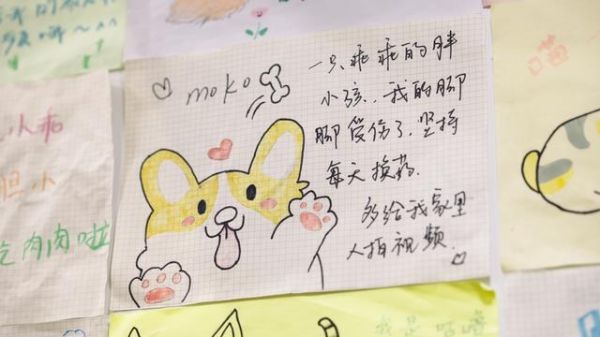 moko
一只乖乖的胖
小孩..我的脚
脚受伤了.坚持
每天换药.
多给我家里
人拍视频.
小乖
胆小
吃肉肉啦
我是咕噜